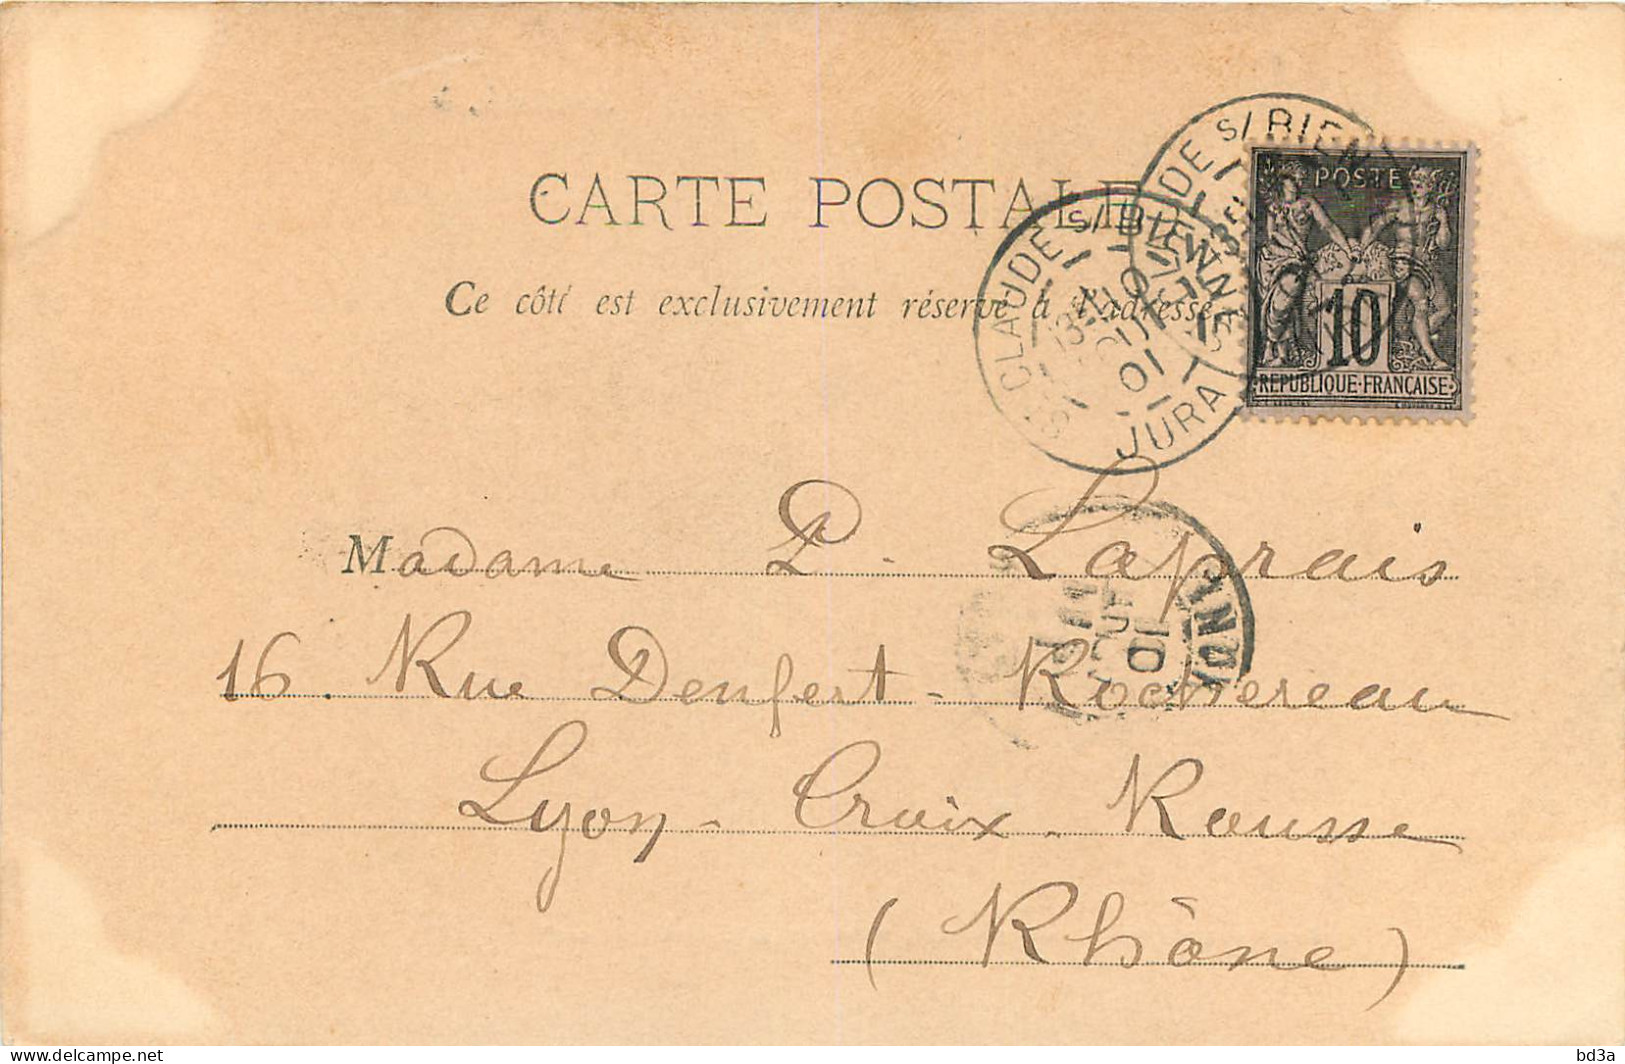 CARTE POSTALE
Ce côté est exclusivement réservé à l'adresse
POSTE
10
REPUBLIQUE·FRANÇAISE
CLAUDE S/ BIENNE
01
JURA
DE S/ BIEN
Madame P. Laprais
16. Rue Denfert-Rochereau
Lyon-Croix-Rousse
(Rhône)
01
delcampe.net
bd3a